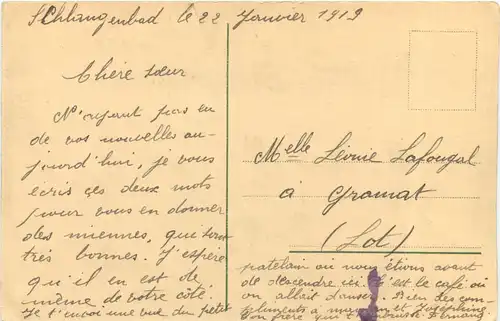 Schlangenbad le 22 Janvier 1919
Chère sœur
N'ayant pas eu
de vos nouvelles au-
jourd'hui, je vous
ecris ces deux mots
pour vous en donner
des miennes, que sont
très bonnes. J'espère
qu'il en est de
même de votre côté.
Je t'envoi une vue du petit
Melle Léonie Lafougal
à Gramat
(Lot)
patelain ou nous étions avant
de descendre ici c'est le café ou
on allait danser. Bien des com-
pliments à maman et Joséphine.
Ton frère qui t'embrasse Fernand